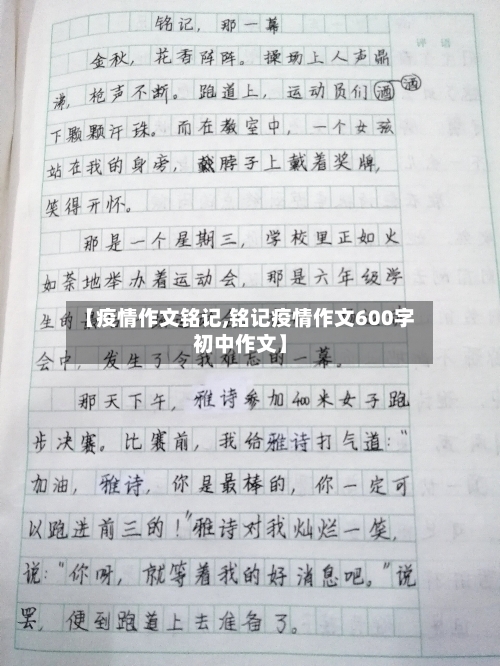 铭记，那一幕
评语
金秋，花香阵阵。操场上人声鼎
沸，枪声不断。跑道上，运动员们洒 洒
下颗颗汗珠。而在教室中，一个女孩
站在我的身旁，戴脖子上戴着奖牌，
笑得开怀。
那是一个星期三，学校里正如火
如荼地举办着运动会，那是六年级学
生的
【疫情作文铭记,铭记疫情作文600字
初中作文】
会中，发生了令我难忘的一幕。
那天下午，雅诗参加400米女子跑
步决赛。比赛前，我给雅诗打气道：“
加油，雅诗，你是最棒的，你一定可
以跑进前三的！”雅诗对我灿烂一笑，
说：“你呀，就等着我的好消息吧。”说
罢，便到跑道上去准备了。